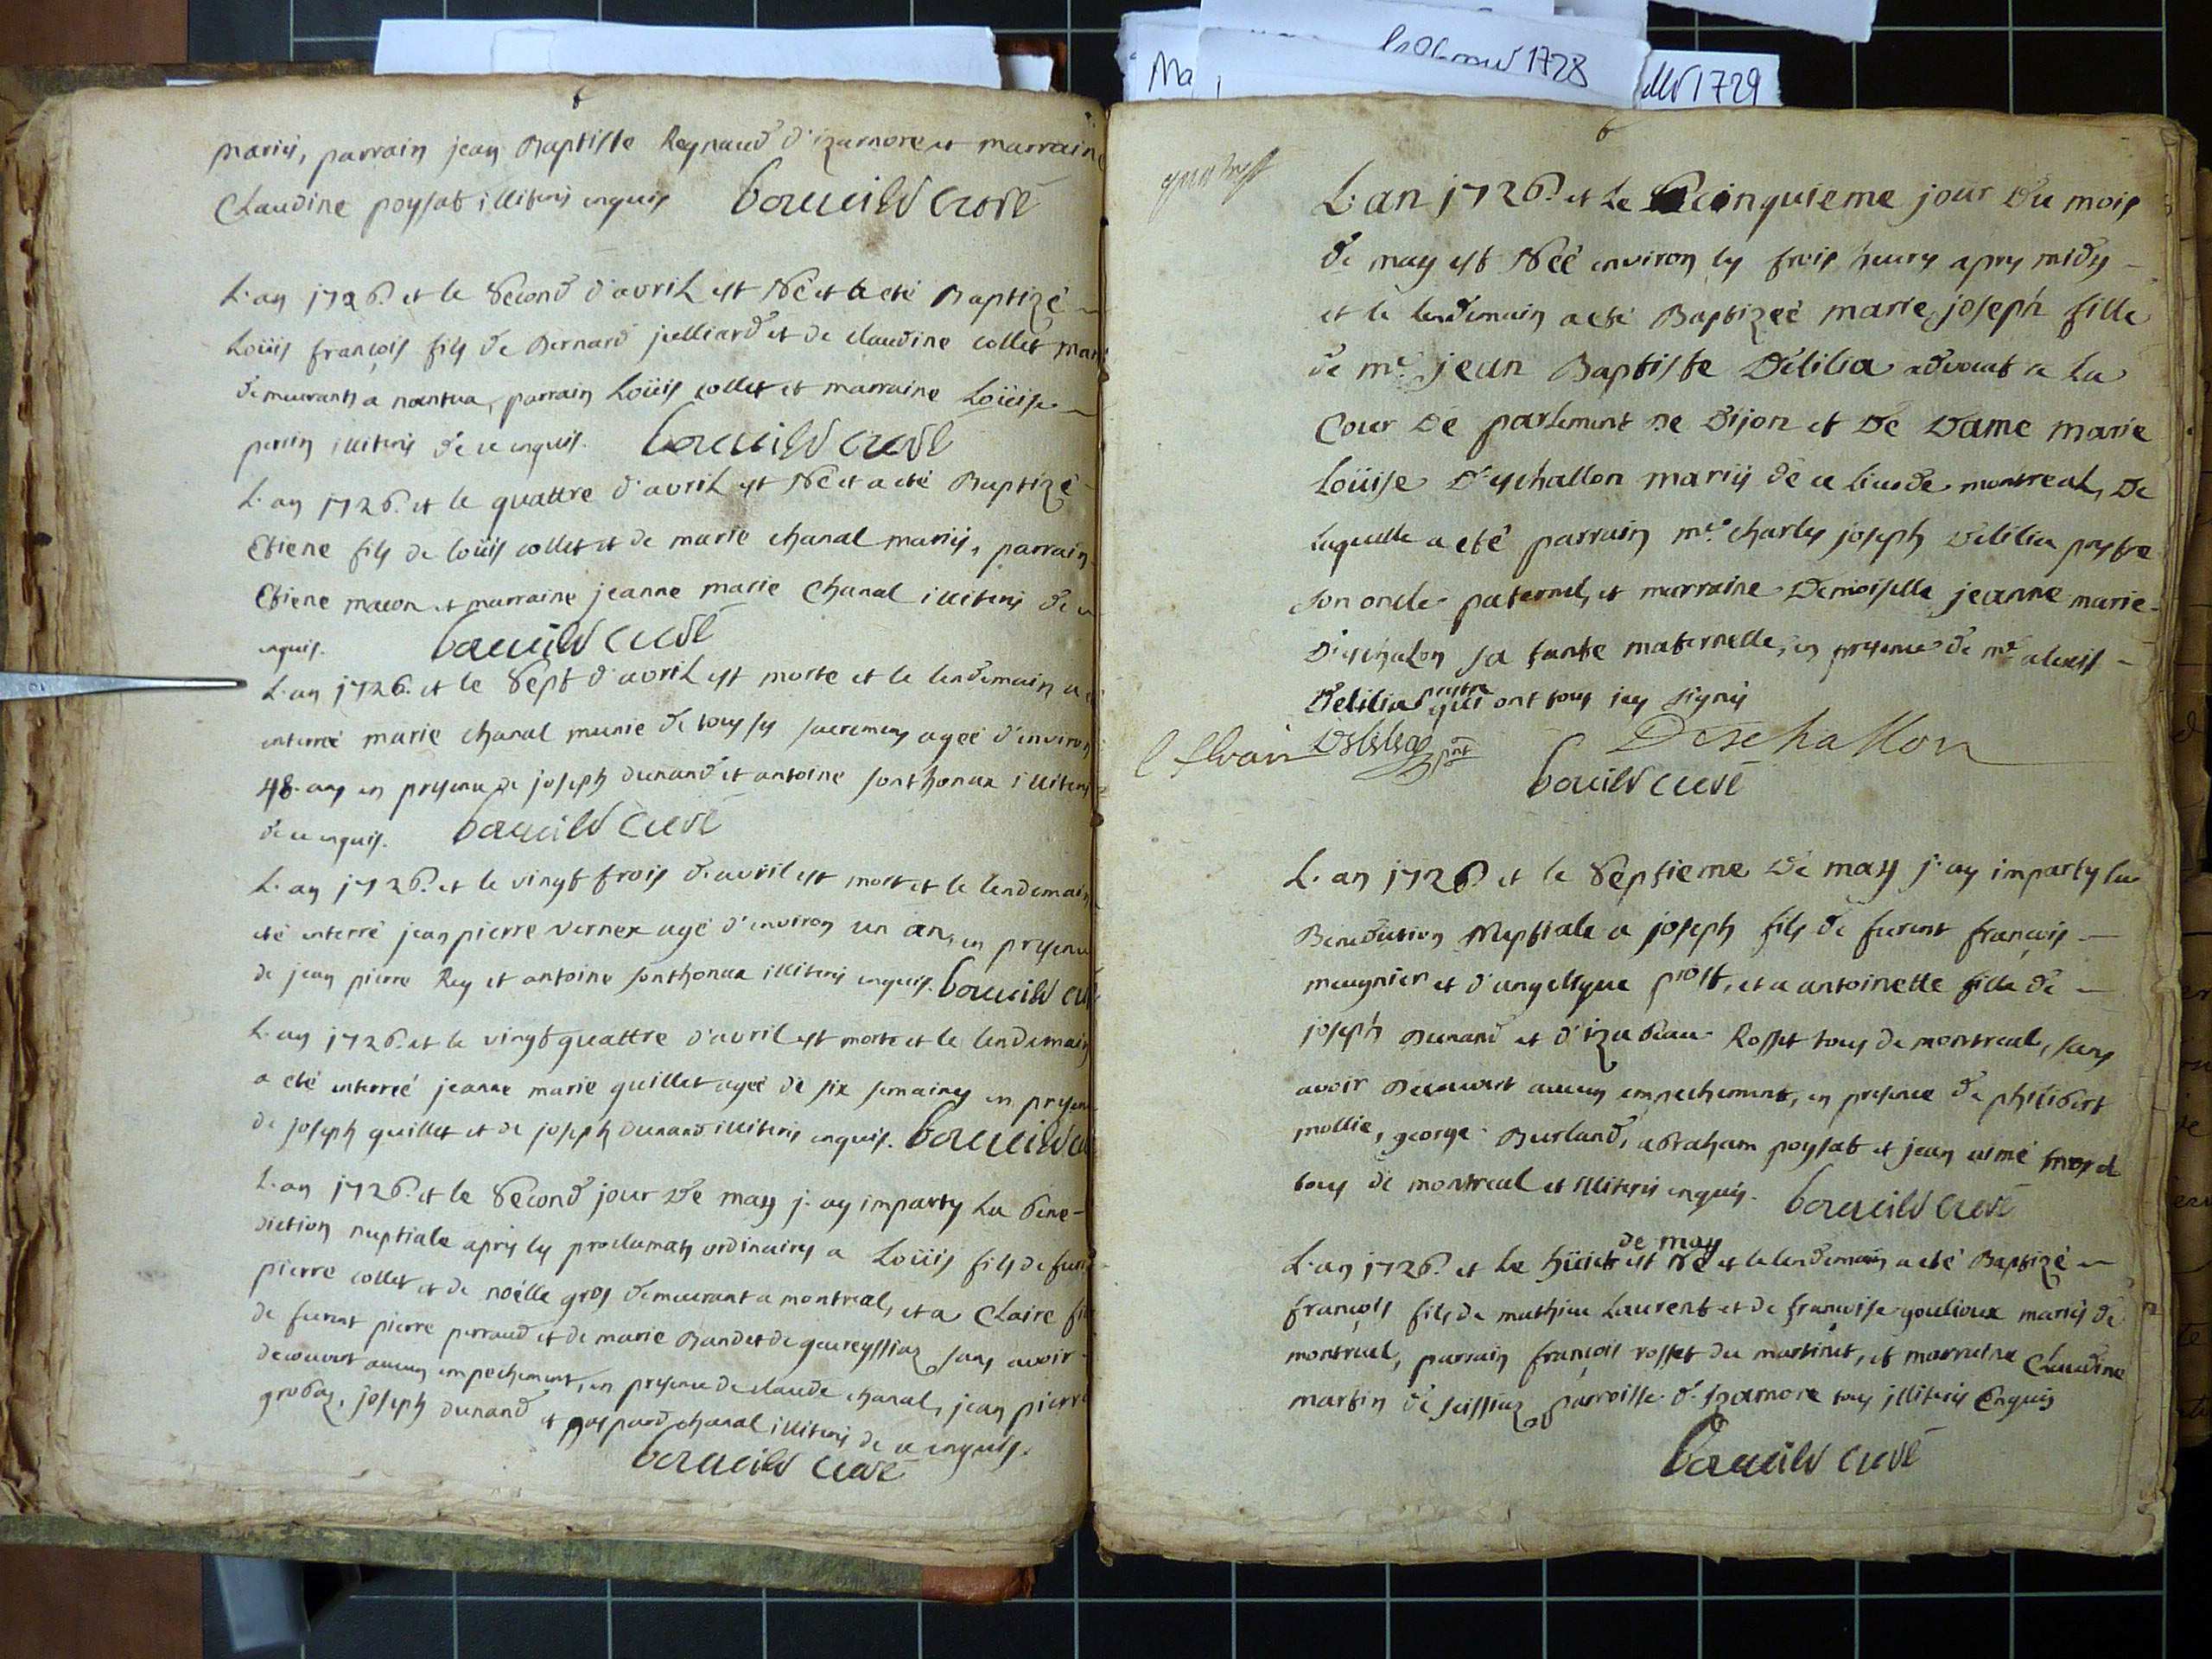 lldV 1729
1728
Ma
6
mariés, parrain jean Baptiste Reynaud d'izarnore et marraine
Claudine poysat illiterés enquis Bouuild curé
L'an 1726. et le Second d'avril est Né et a eté Baptizé
Loüis françois fils de Bernard juilliard et de claudine collet mari
demeurants a nantua, parrain Loüis collet et marraine Loüise
perrin illiterés de ce enquis. Bouuild curé
L'an 1726. et le quattre d'avril est Né et a eté Baptizé
Etiene fils de loüis collet et de marie chanal mariés, parrain
Etiene macon et marraine jeanne marie Chanal illiterés de ce
enquis. Bouuild curé
L'an 1726. et le Sept d'avril est morte et le lendemain a e
interreé marie chanal munie de tous ses sacremens ageé d'environ
48. ans en presence de joseph dunand et antoine sonthonax illiterés
de ce enquis. Bouuild curé
L'an 1726. et le vingt trois d'avril est mort et le lendemain
eté interré jean pierre vernex agé d'environ un an, en presence
de jean pierre Rey et antoine sonthonax illiterés enquis. Bouuild cu
L'an 1726. et le vingt quattre d'avril est morte et le lendemain
a eté interreé jeanne marie quillet ageé de six semaines en presen
de joseph quillet et de joseph dunand illiterés enquis. Bouuild cu
L'an 1726. et le Second jour De may j'ay imparty La bene-
diction nuptiale aprés les proclamats ordinaires a Loüis fils de feu
pierre collet et de noëlle gros demeurant a montreal, et a Claire fi
de furent pierre perraud et de marie Bandet de geureyssiaz sans avoir
decouvert aucun empechement, en presence de claude chanal, jean pierre
grobaz, joseph dunand et gaspard chanal illiterés de ce enquis.
Bouuild curé
6
L'an 1726. et Le cinquieme jour Du mois
de may est Néé environ les trois heures apres midy
et le lendemain a eté Baptizeé marie joseph fille
de me. jean Baptiste Délilia advocat a La
Cour De parlement De Dijon et De Dame marie
Loüise D'eschallon mariés de ce lieu de montreal, De
laquelle a eté parrain mre. charles joseph Délilia prestre
son oncle paternel, et marraine Demoiselle jeanne marie
D'eschalon sa tante maternelle, en presence de mre alexis
Délilia prestre qui ont tous icy signés
Delilia Deschallon
Bouuild curé
L'an 1726. et le Septieme De may j'ay imparty la
Benediction Nuptiale a joseph fils de furent françois
meugnier et d'angelique prost, et a antoinette fille de
joseph Dunand et d'izabeau Rosset tous de montreal, sans
avoir Decouvert aucun empechement, en presence de philibert
mollie, george Burland, abraham poysat et jean aimé
tous de montreal et illiterés enquis. Bouuild curé
de may
L'an 1726. et Le hüict est Né et le lendemain a eté Baptizé
françois fils de mathieu Laurent et de françoise goulioux mariés de
montreal, parrain françois rosset du martinet, et marraine Claudine
martin de seissiaz parroisse d'izarnore tous illiterés Enquis
Bouuild curé